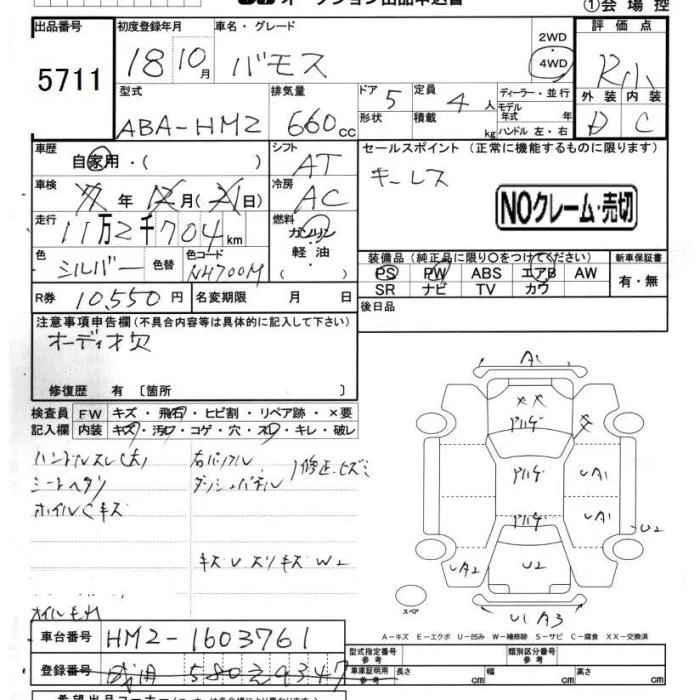 オークション出品申込書
①会場控
出品番号 5711
初度登録年月 18 10月
車名・グレード バモス
2WD・4WD
評価点 R小
外装 D 内装 C
型式 ABA-HM2
排気量 660cc
ドア 5 定員 4人
形状 積載 kg
ディーラー・並行
モデル年式 年
ハンドル 左・右
車歴 自家用・( )
シフト AT
セールスポイント(正常に機能するものに限ります)
キーレス
NOクレーム・売切
車検 年 12月(21日)
冷房 AC
走行 11万2千704km
燃料 ガソリン 軽油
色 シルバー 色替 色コード NH700M
装備品(純正品に限り○をつけてください)
PS PW ABS エアB AW
SR ナビ TV カワ
新車保証書 有・無
R券 10,550円 名変期限 月 日
後日品
注意事項申告欄(不具合内容等は具体的に記入して下さい)
オーディオ欠
修復歴 有〔箇所 〕
検査員記入欄
FW キズ・飛石・ヒビ割・リペア跡・×要
内装 キズ・汚れ・コゲ・穴・スレ・キレ・破レ
ハンドルスレ(大)
シートヘタリ
ホイルCキズ
ダッシュパネル
キズ U スリキズ W2
オイルもれ
A1
XX
U A1
U A1
U2
U2
A2
U1 A3
スペア
A-キズ E-エクボ U-凹み W-補修跡 S-サビ C-腐食 XX-交換済
車台番号 HM2-1603761
型式指定番号 参考
類別区分番号 参考
登録番号 580 え 4347
車庫証明用 参考 長さ cm 幅 cm 高さ cm
希望出品コーナー